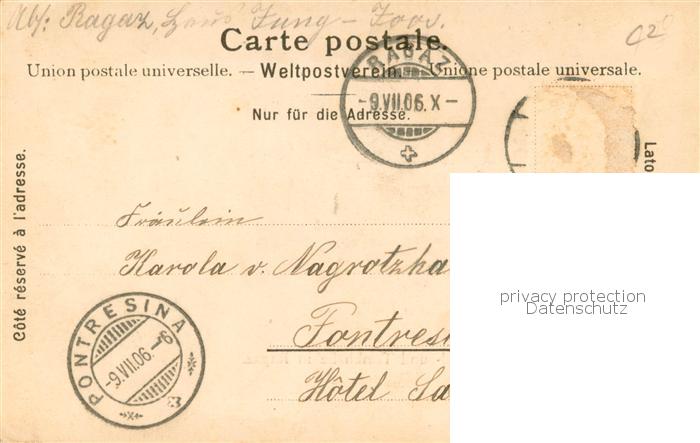 Abs: Ragaz, Haus Jung-Joos.
Carte postale.
Union postale universelle. — Weltpostverein. — Unione postale universale.
Nur für die Adresse.
RAGAZ
-9.VII.06.X-
Côté réservé à l'adresse.
Lato
Fräulein
Karola v. Nagrotzha
Pontres
Hôtel Sa
PONTRESINA
-9.VII.06.
privacy protection
Datenschutz